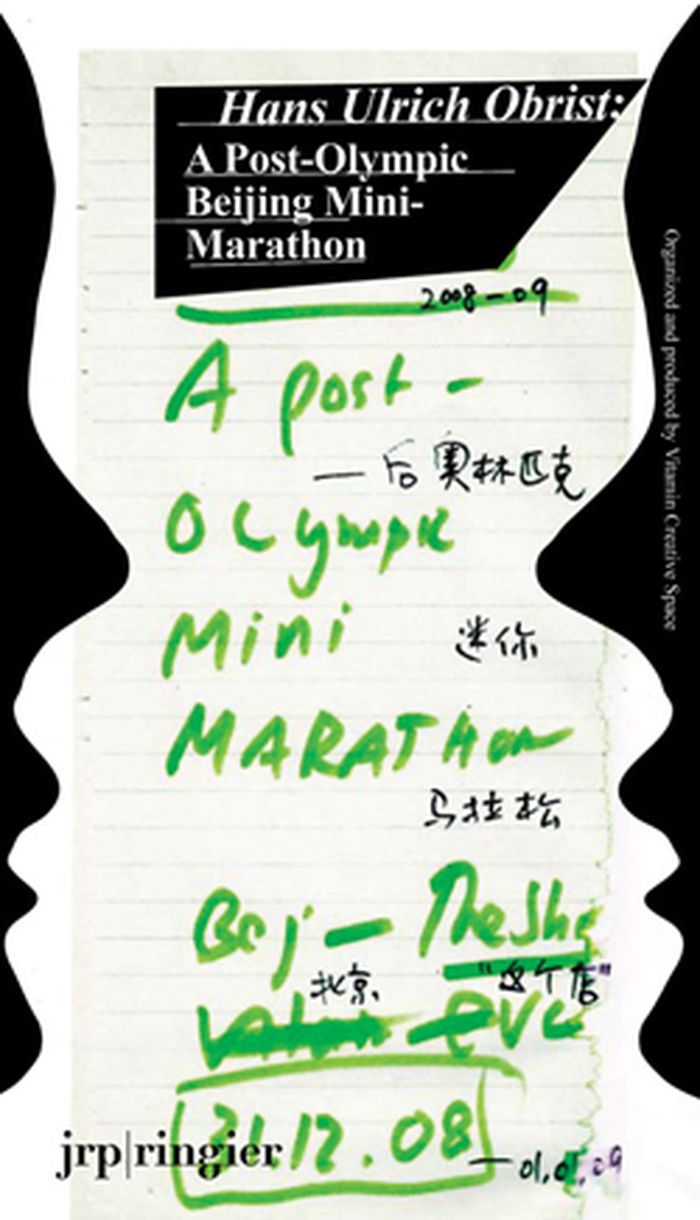 Hans Ulrich Obrist:
A Post-Olympic
Beijing Mini-
Marathon
Organized and produced by Vitamin Creative Space
2008-09
A post -
— 后奥林匹克
OLympic
Mini
迷你
MARATHon
马拉松
Bej — The Sho
北京、 "这个店"
eve
31.12.08
— 01,01,09
jrp|ringier